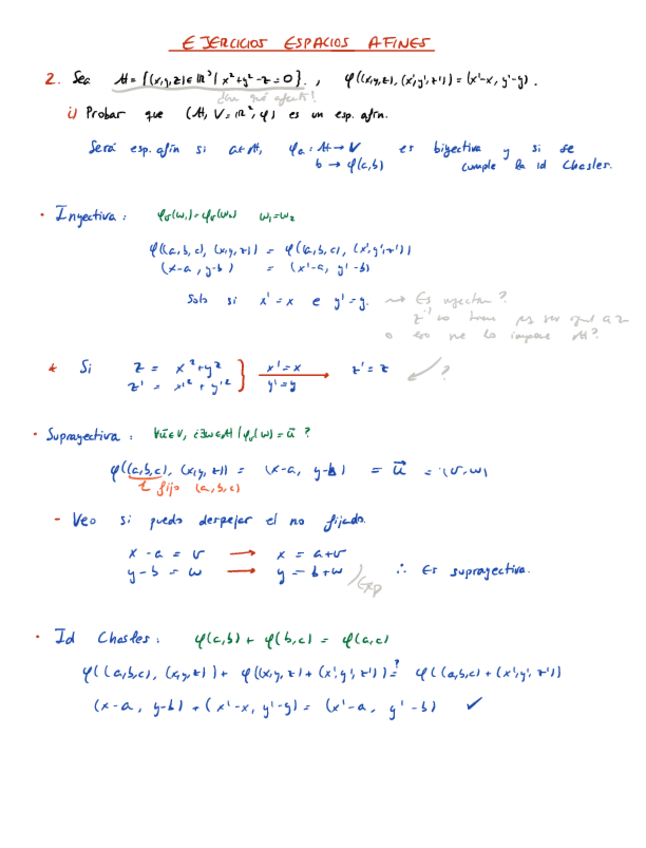 EJERCICIOS ESPACIOS AFINES
2. Sea A = {(x,y,z) ∈ ℝ³ | x²+y²-z=0}. , φ((x,y,z), (x',y',z')) = (x'-x, y'-y).
¿En qué afecta?
i) Probar que (A, V=ℝ², φ) es un esp. afín.
Será esp. afín si a∈A, φₐ: A → V es biyectiva y si se
b → φ(a,b) cumple la id Chasles.
· Inyectiva: φσ(w₁)=φσ(w₂) w₁=w₂
φ((a,b,c), (x,y,z)) = φ((a,b,c), (x',y',z'))
(x-a, y-b) = (x'-a, y'-b)
Solo si x'=x e y'=y. → Es inyectiva?
z' no tiene ser igual a z
o eso me lo impone A?
* Si z = x²+y² } x'=x → z'=z ✓?
z' = x'²+y'² } y'=y
· Suprayectiva: ∀ū∈V, ¿∃w∈A / φσ(w)=ū ?
φ((a,b,c), (x,y,z)) = (x-a, y-b) = u⃗ = (v,w)
fijo (a,b,c)
- Veo si puedo despejar el no fijado.
x-a = v → x = a+v
y-b = w → y = b+w ) Exp ∴ Es suprayectiva.
· Id Chasles: φ(a,b) + φ(b,c) = φ(a,c)
φ((a,b,c), (x,y,z)) + φ((x,y,z)+(x',y',z')) =? φ((a,b,c)+(x',y',z'))
(x-a, y-b) + (x'-x, y'-y) = (x'-a, y'-b) ✓